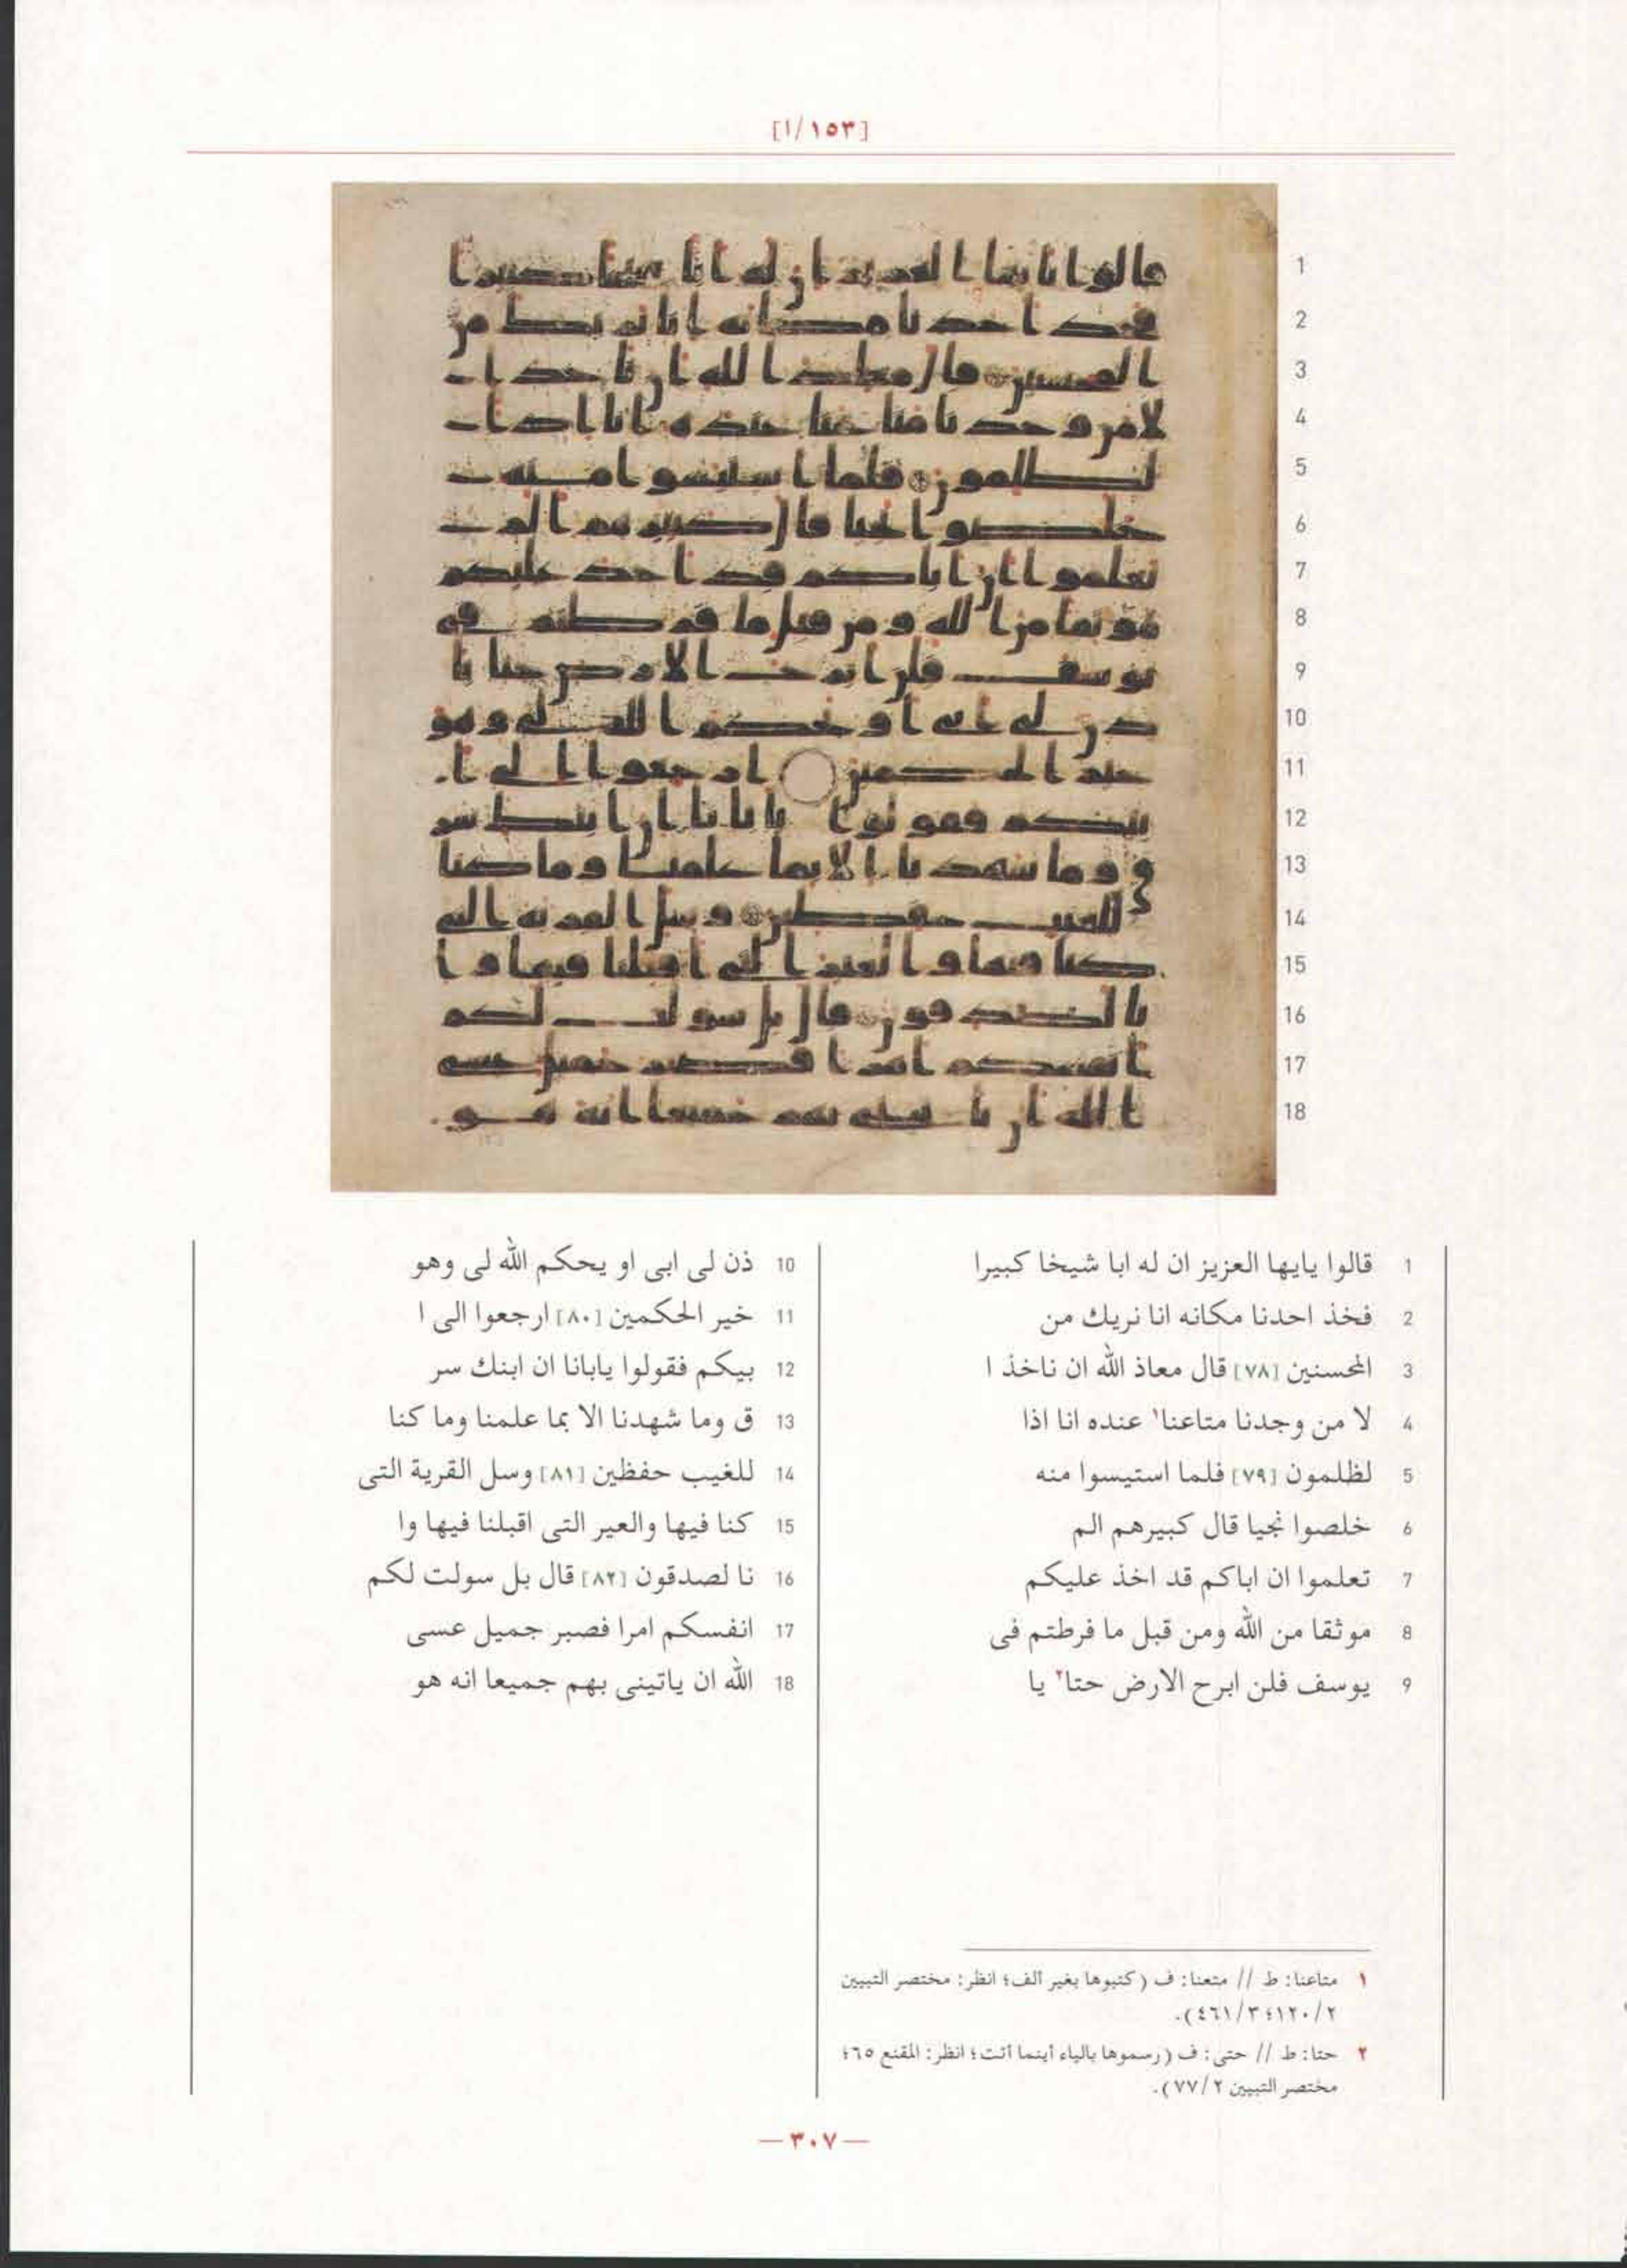 [١/١٥٣]
1 قالوا يايها العزيز ان له ابا شيخا كبيرا
2 فخذ احدنا مكانه انا نريك من
3 المحسنين [٧٨] قال معاذ الله ان ناخذ ا
4 لا من وجدنا متاعنا١ عنده انا اذا
5 لظلمون [٧٩] فلما استيسوا منه
6 خلصوا نجيا قال كبيرهم الم
7 تعلموا ان اباكم قد اخذ عليكم
8 موثقا من الله ومن قبل ما فرطتم فى
9 يوسف فلن ابرح الارض حتا٢ يا
10 ذن لى ابى او يحكم الله لى وهو
11 خير الحكمين [٨٠] ارجعوا الى ا
12 بيكم فقولوا يابانا ان ابنك سر
13 ق وما شهدنا الا بما علمنا وما كنا
14 للغيب حفظين [٨١] وسل القرية التى
15 كنا فيها والعير التى اقبلنا فيها وا
16 نا لصدقون [٨٢] قال بل سولت لكم
17 انفسكم امرا فصبر جميل عسى
18 الله ان ياتينى بهم جميعا انه هو
١ متاعنا: ط // متعنا: ف (كتبوها بغير ألف؛ انظر: مختصر التبيين
٢/١٢٠؛ ٣/٤٦١).
٢ حتا: ط // حتى: ف (رسموها بالياء أينما أتت؛ انظر: المقنع ٦٥؛
مختصر التبيين ٢/٧٧).
— ٣٠٧ —